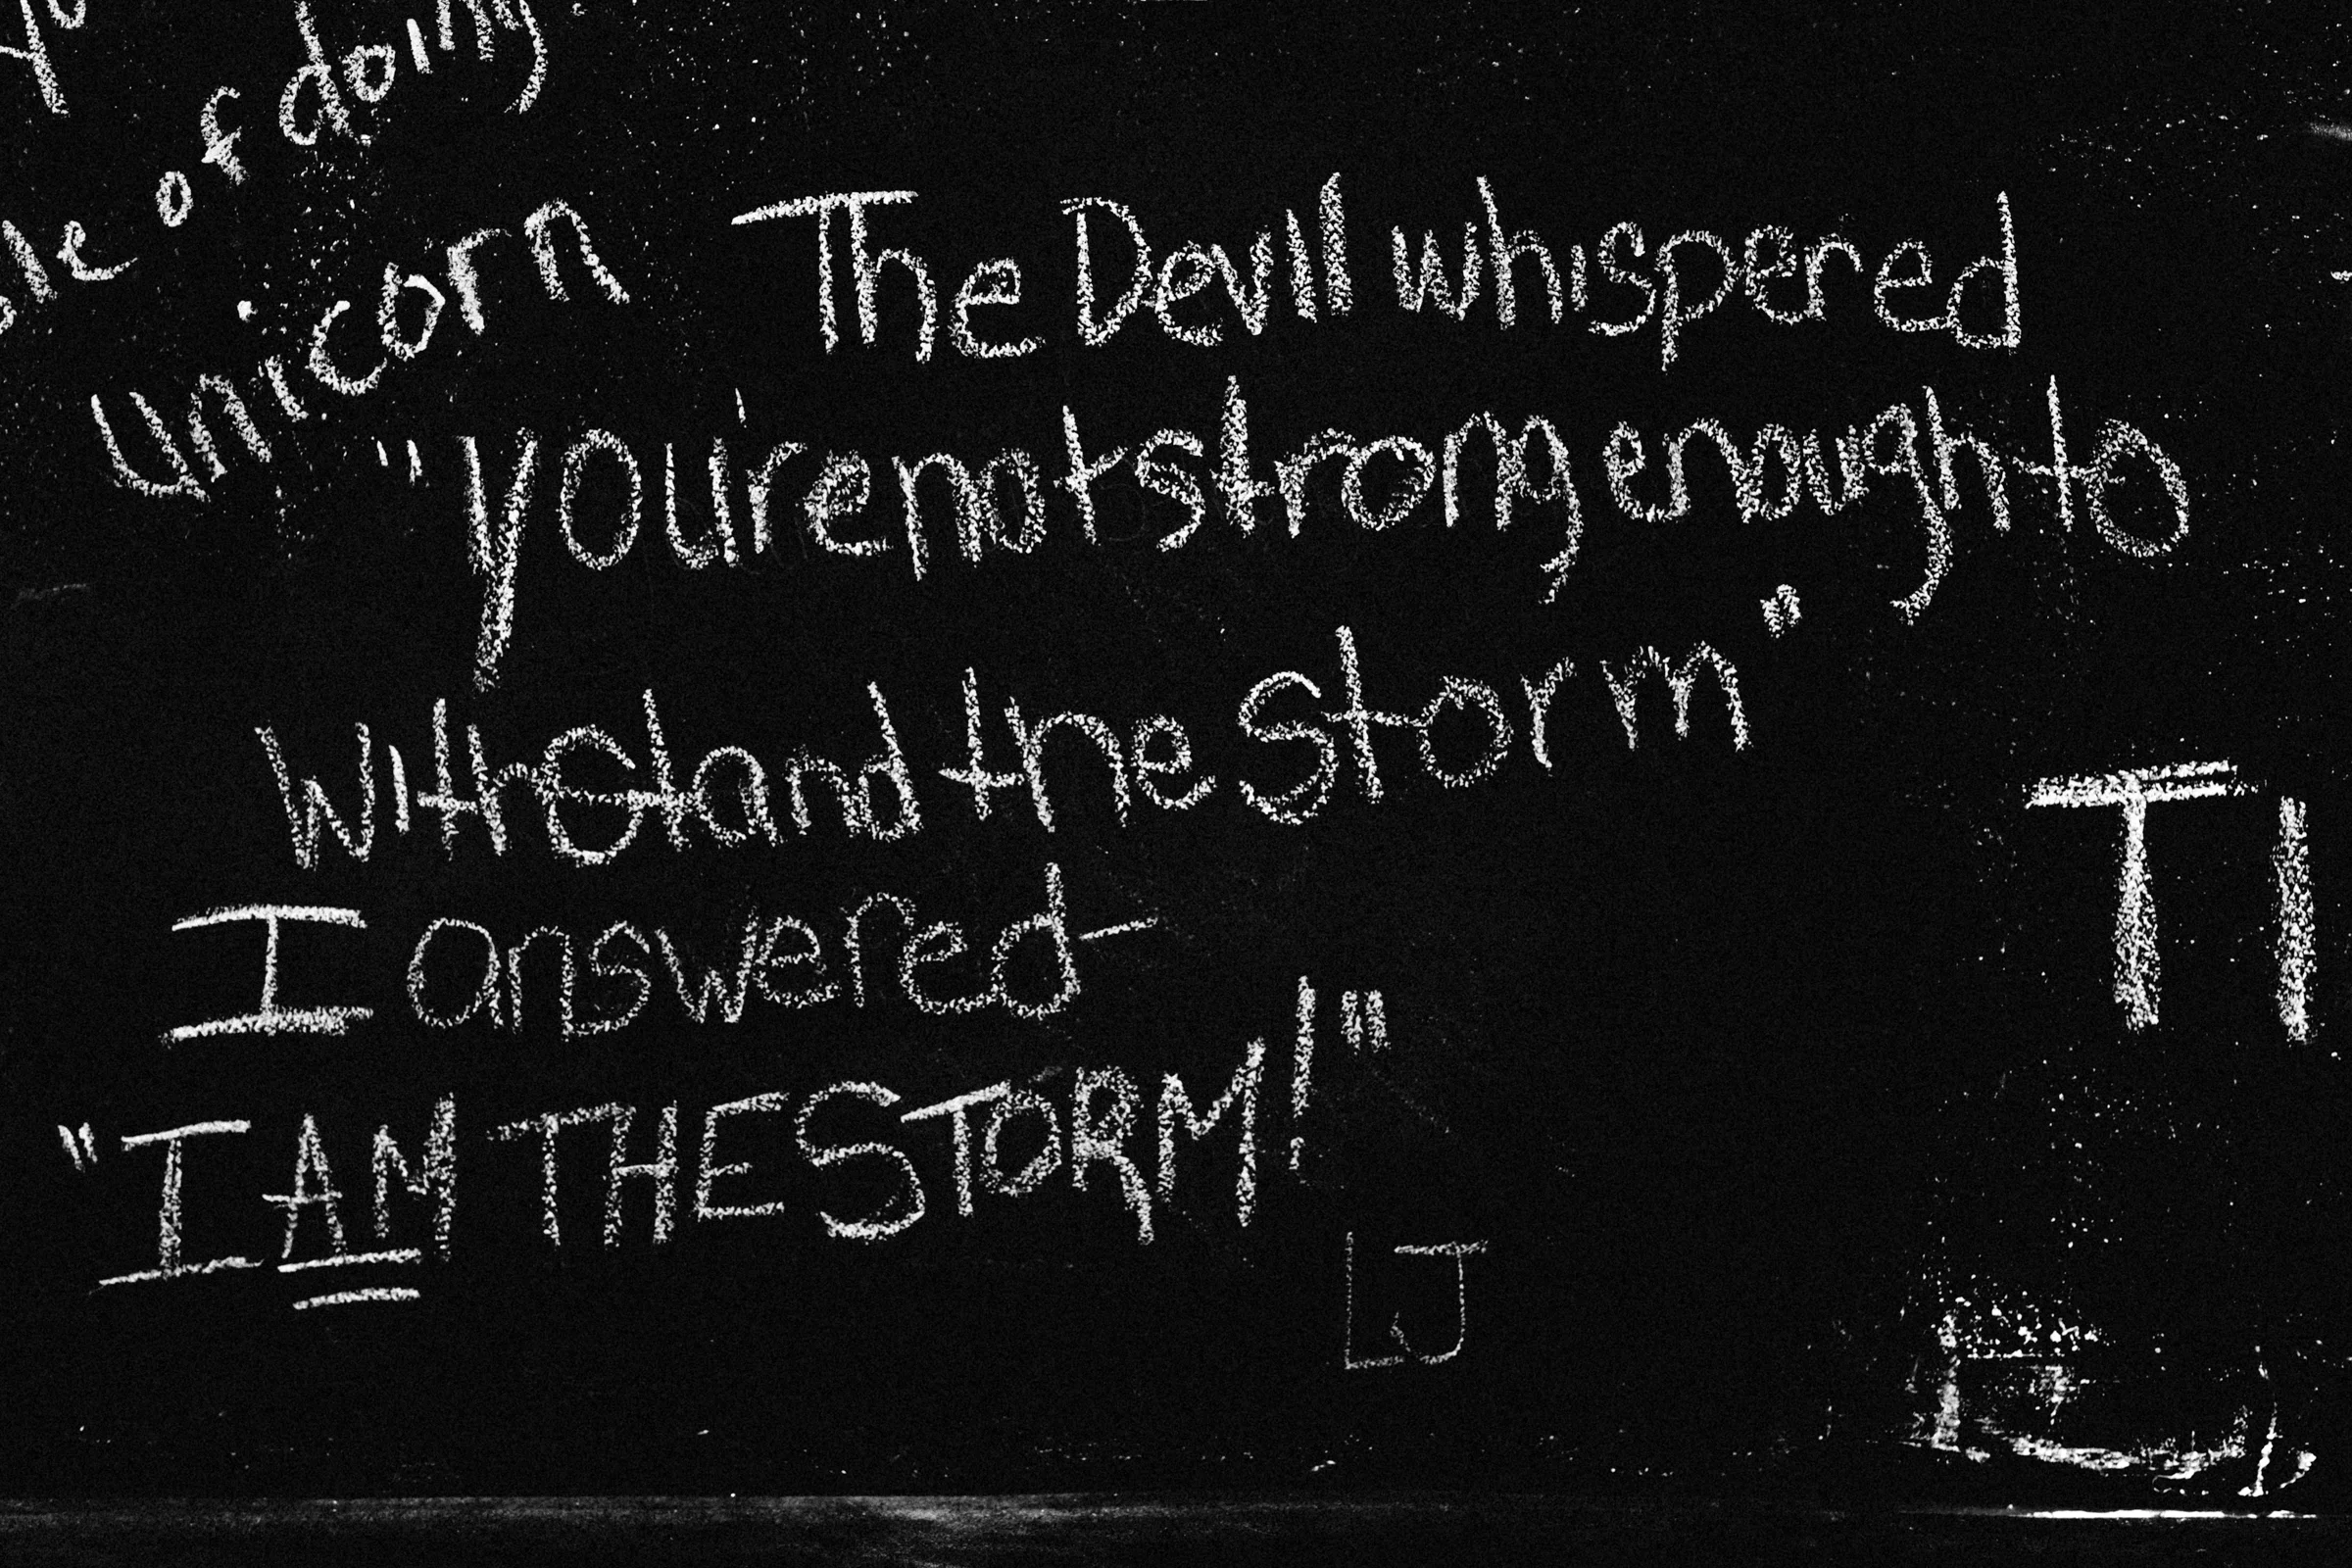 of doing
Unicorn
The Devil whispered
"you're not strong enough to
withstand the storm"
I answered-
"I AM THE STORM!"
LJ